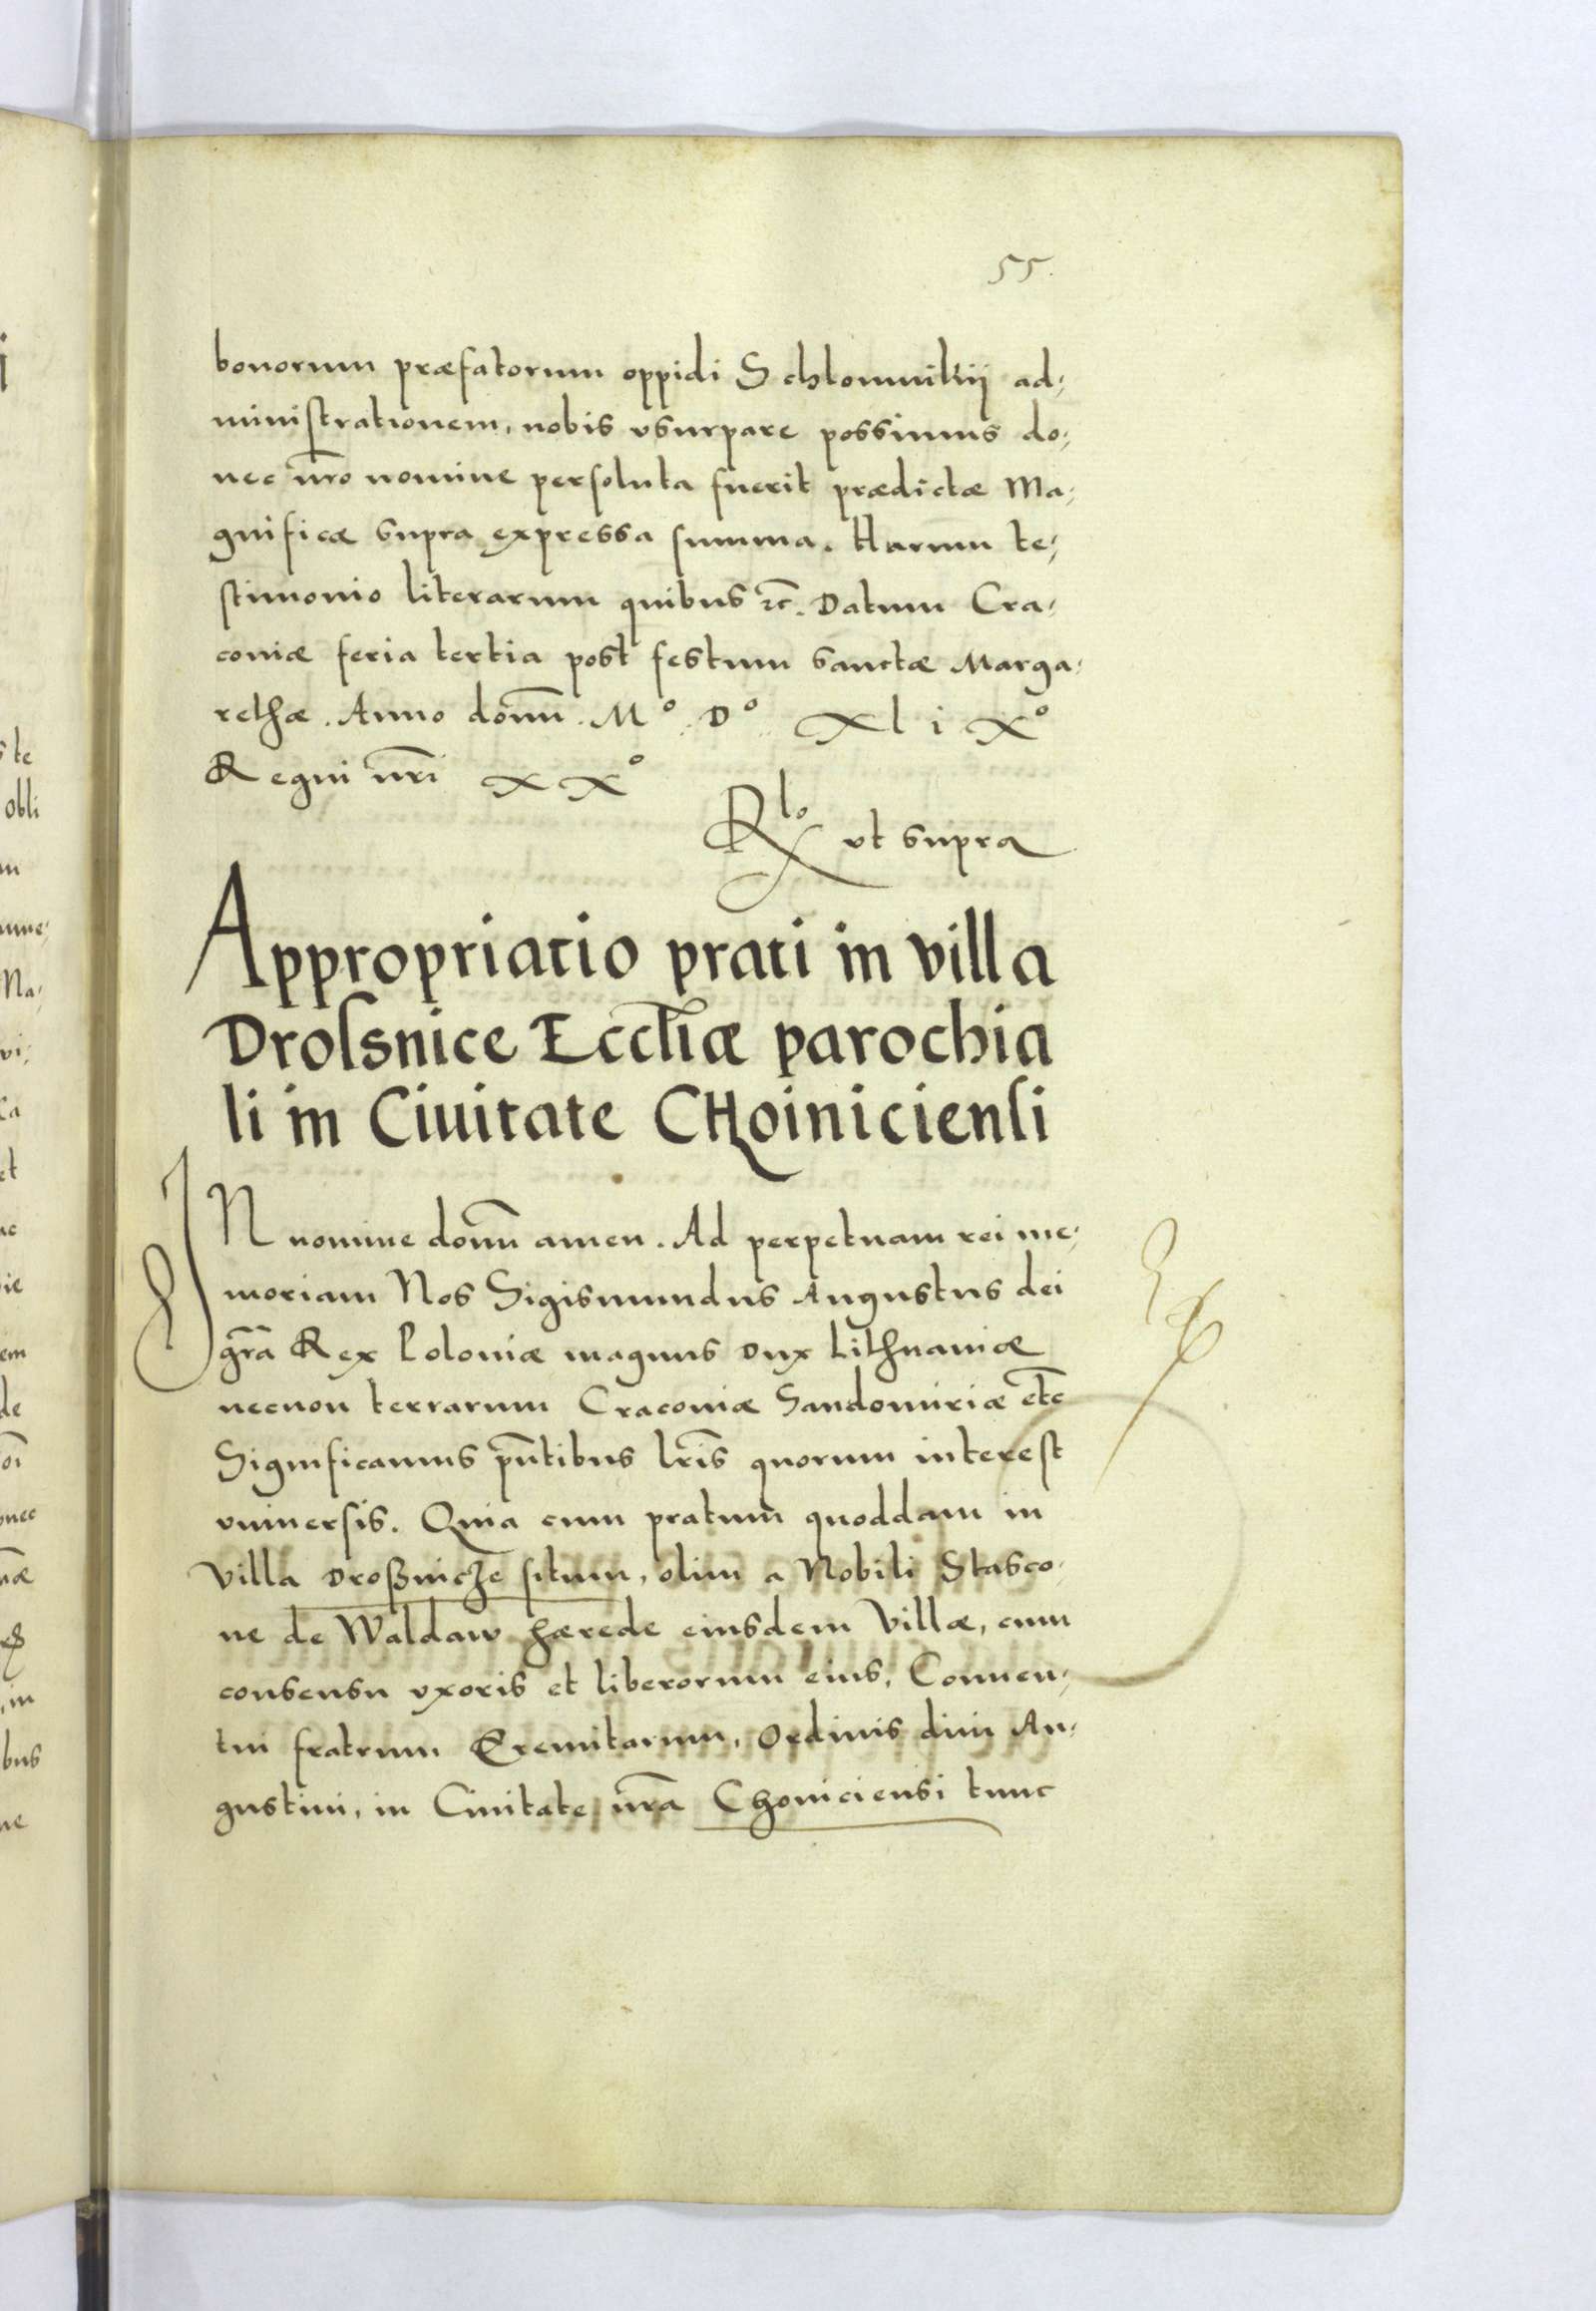 55.
bonorum præfatorum oppidi Schlomnikij ad;
ministrationem, nobis vsurpare possimus do;
nec nr̃o nomine persoluta fuerit prædictæ Ma;
gnificæ supra expressa summa. Harum te;
stimonio literarum quibus ⁊c̃. Datum Cra;
coniæ feria tertia post festum sanctæ Marga;
rethæ. Anno domĩ. Mº. Dº xlixº
Regni nr̃i xxº
Rlº vt supra
Appropriatio prati in villa
Drossnice Eccl̃iæ parochia
li in Ciuitate CHoiniciensi
IN nomine domĩ amen. Ad perpetuam rei me;
moriam Nos Sigismundus Augustus dei
gr̃a Rex Poloniæ magnus Dux Lithuaniæ
necnon terrarum Cracoviæ Sandomiriæ et̃c
Significamus pñtibus lr̃is quorum interest
vniuersis. Quia cum pratum quoddam in
villa Droßnicze situm, olim a Nobili Stasco;
ne de Waldaw hærede eiusdem Villæ, cum
consensu vxoris et liberorum eius, Conuen;
tui fratrum Eremitarum, Ordinis diui Au;
gustini, in Ciuitate nr̃a Choniciensi tunc